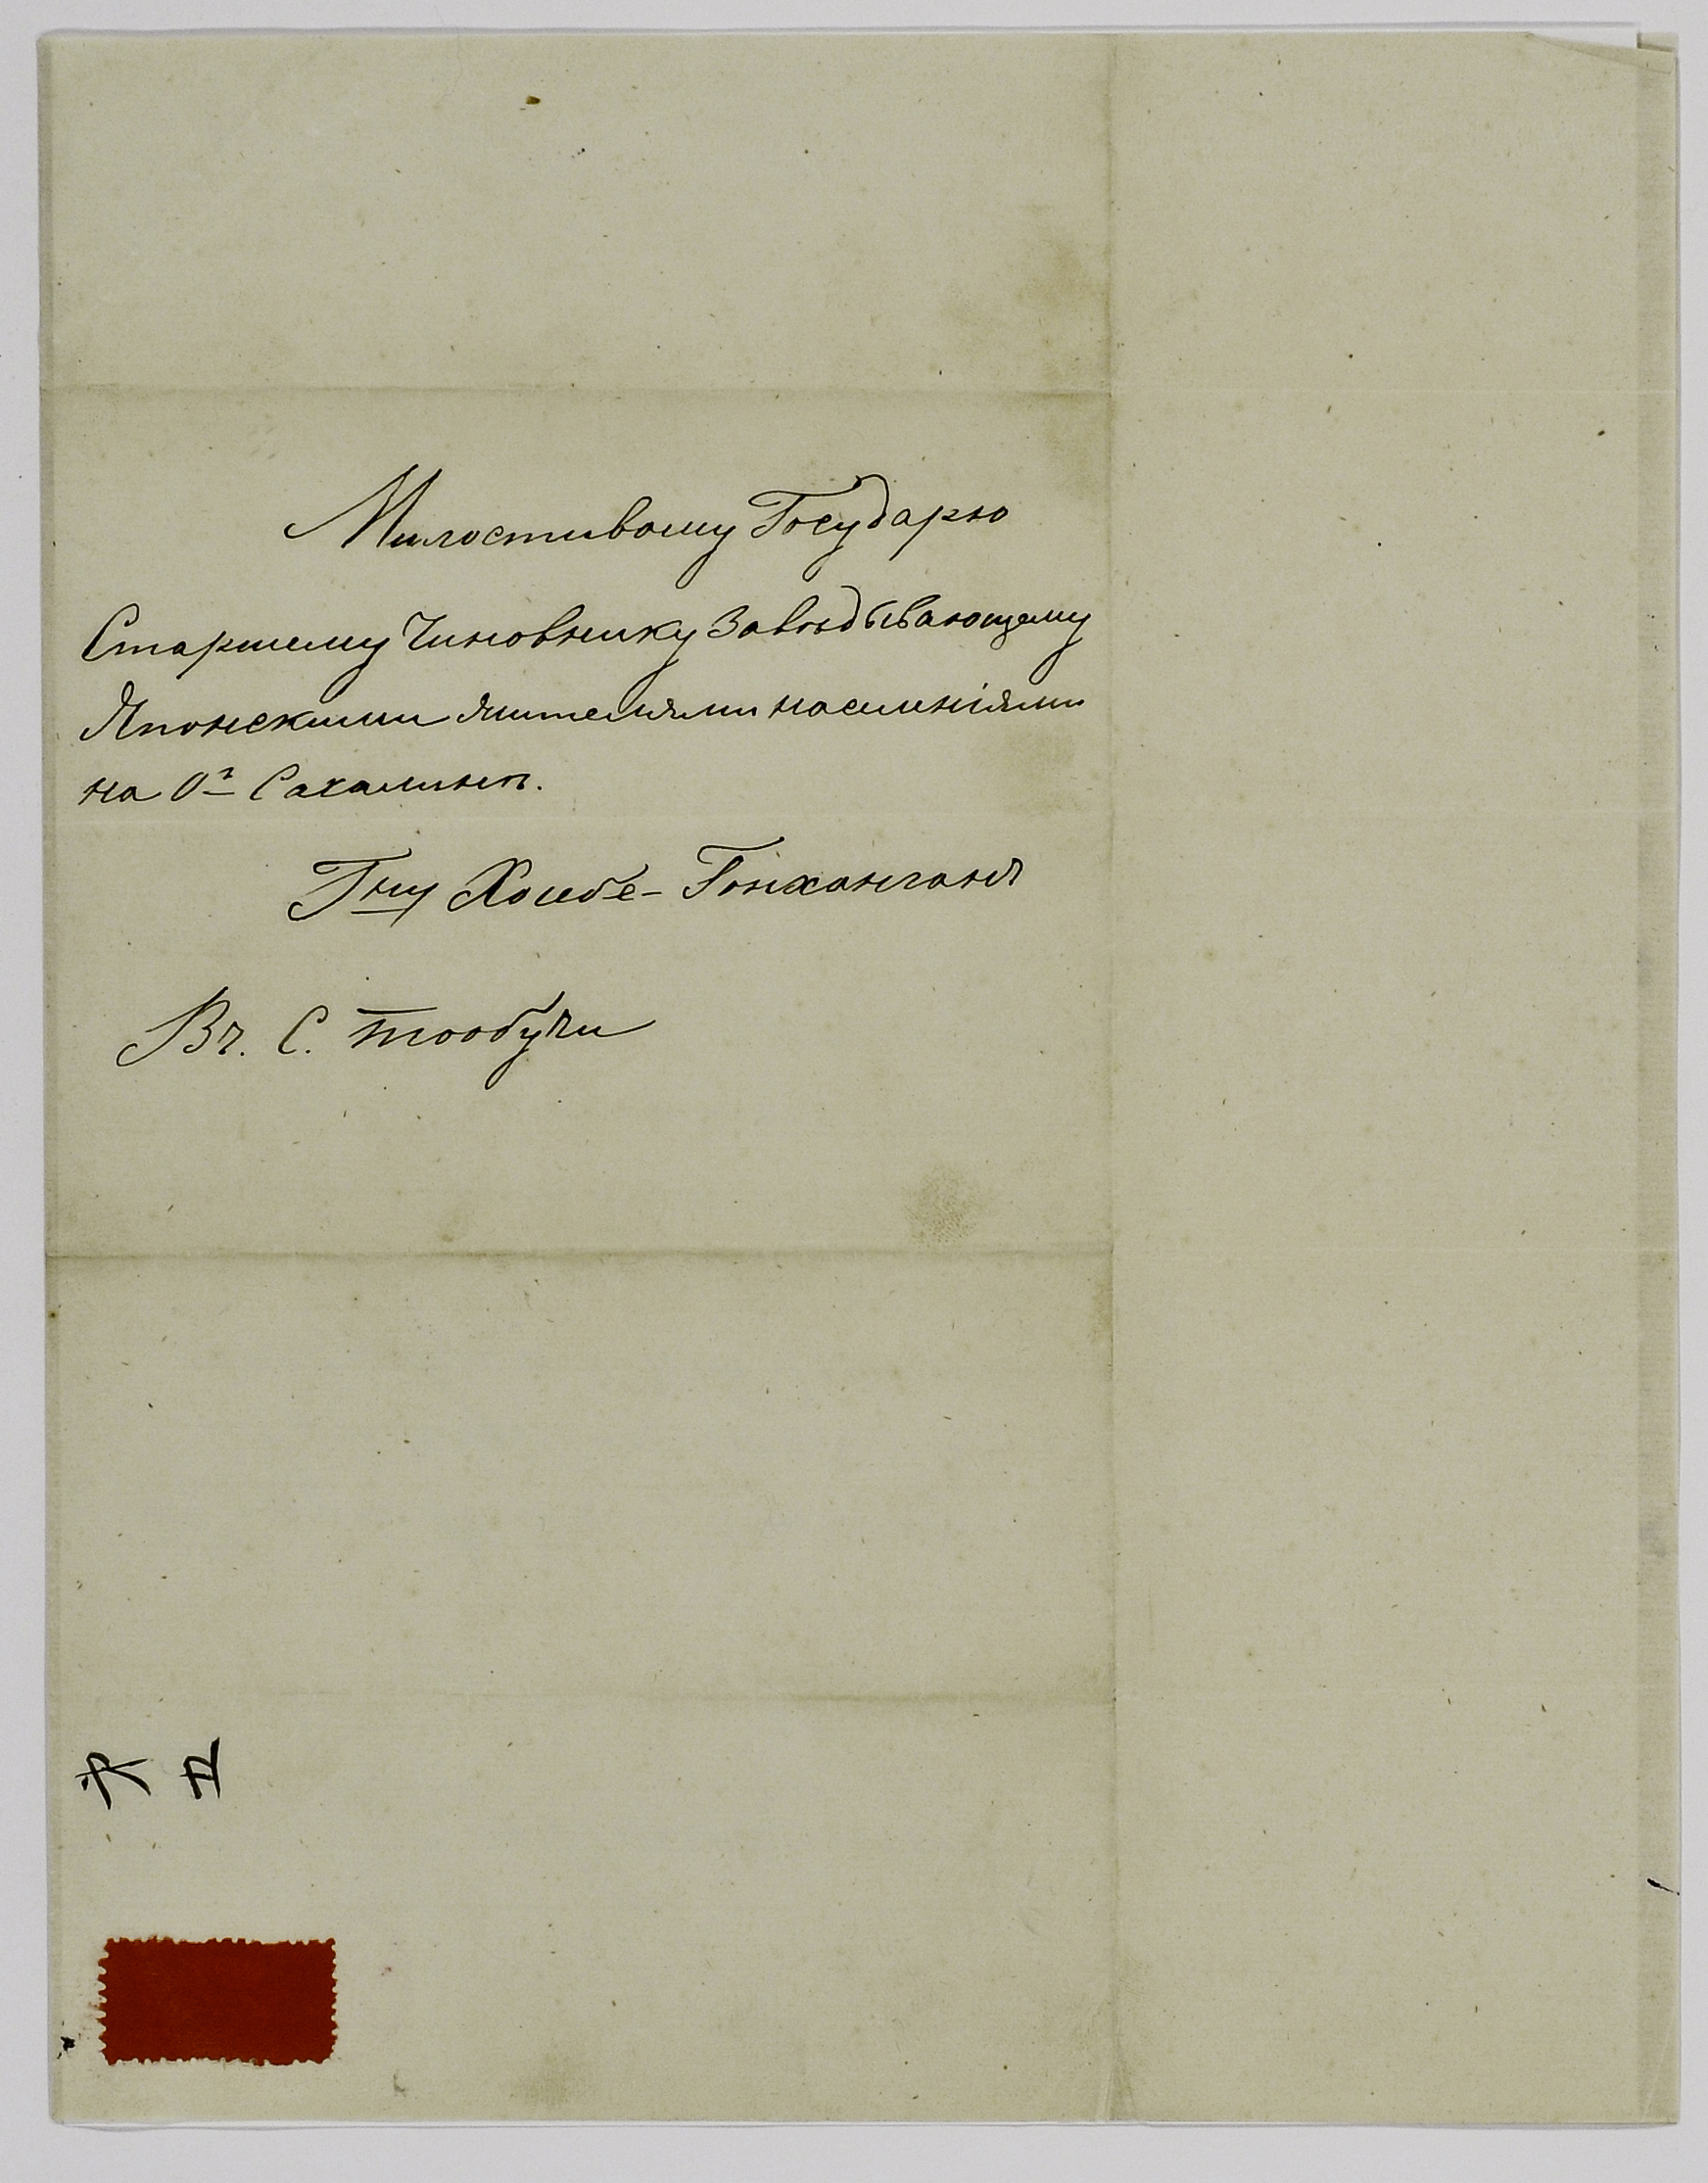 Милостивому Государю
Старшему Чиновнику Завѣдывающему
Японскими жителями населеніями
на О-ѣ Сахалинѣ.
Гну Хоибе-
Въ. С. Тообучи